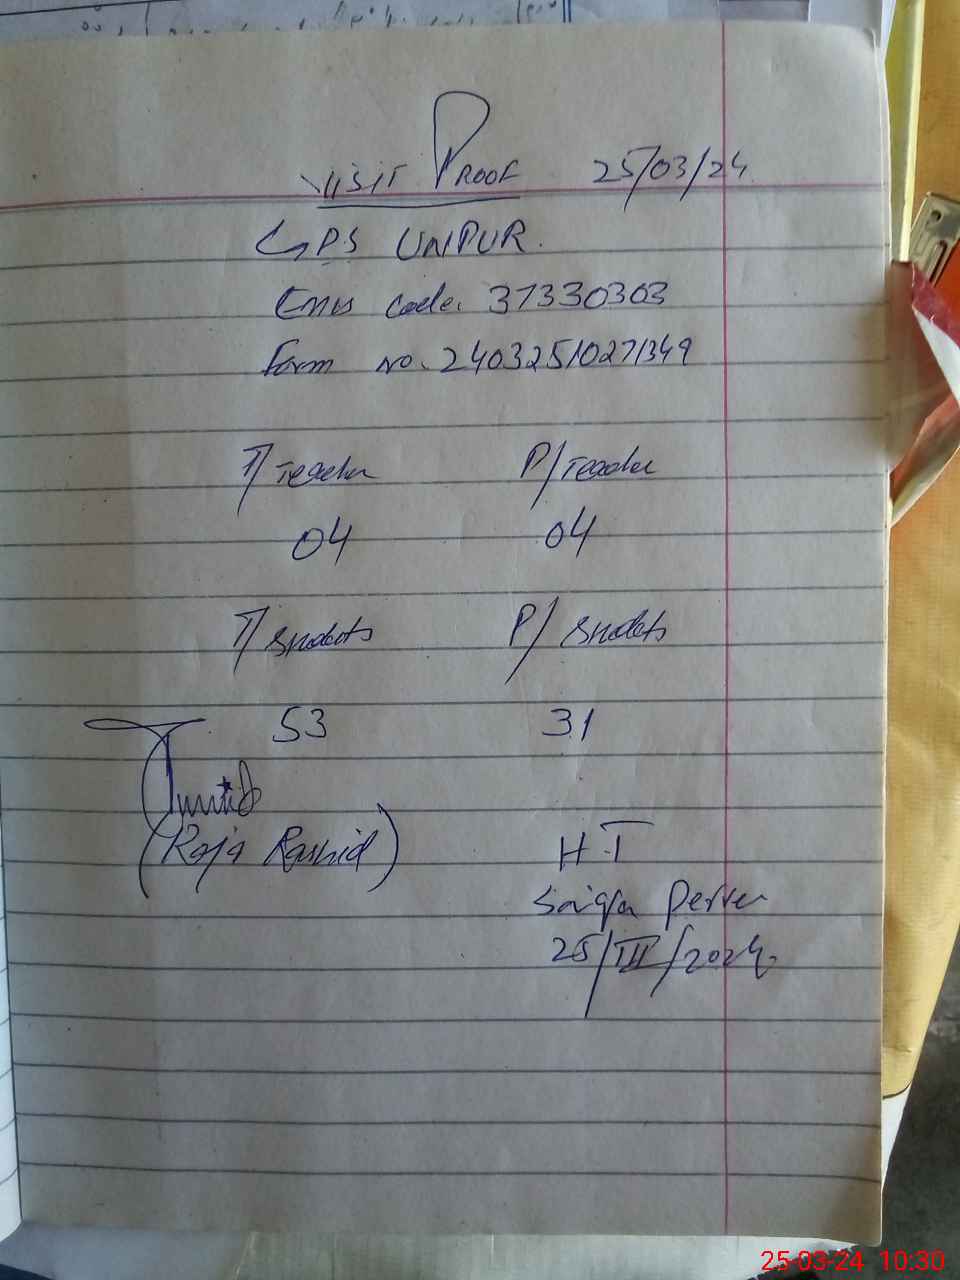 VISIT PROOF 25/03/24
GPS UNPUR.
Emis code. 37330303
Form no. 24032510271349
T/Teacher P/Teacher
04 04
T/Students P/Students
53 31
(Raja Rashid)
H.T
Saiqa Perven
25/III/2024
25-03-24 10:30